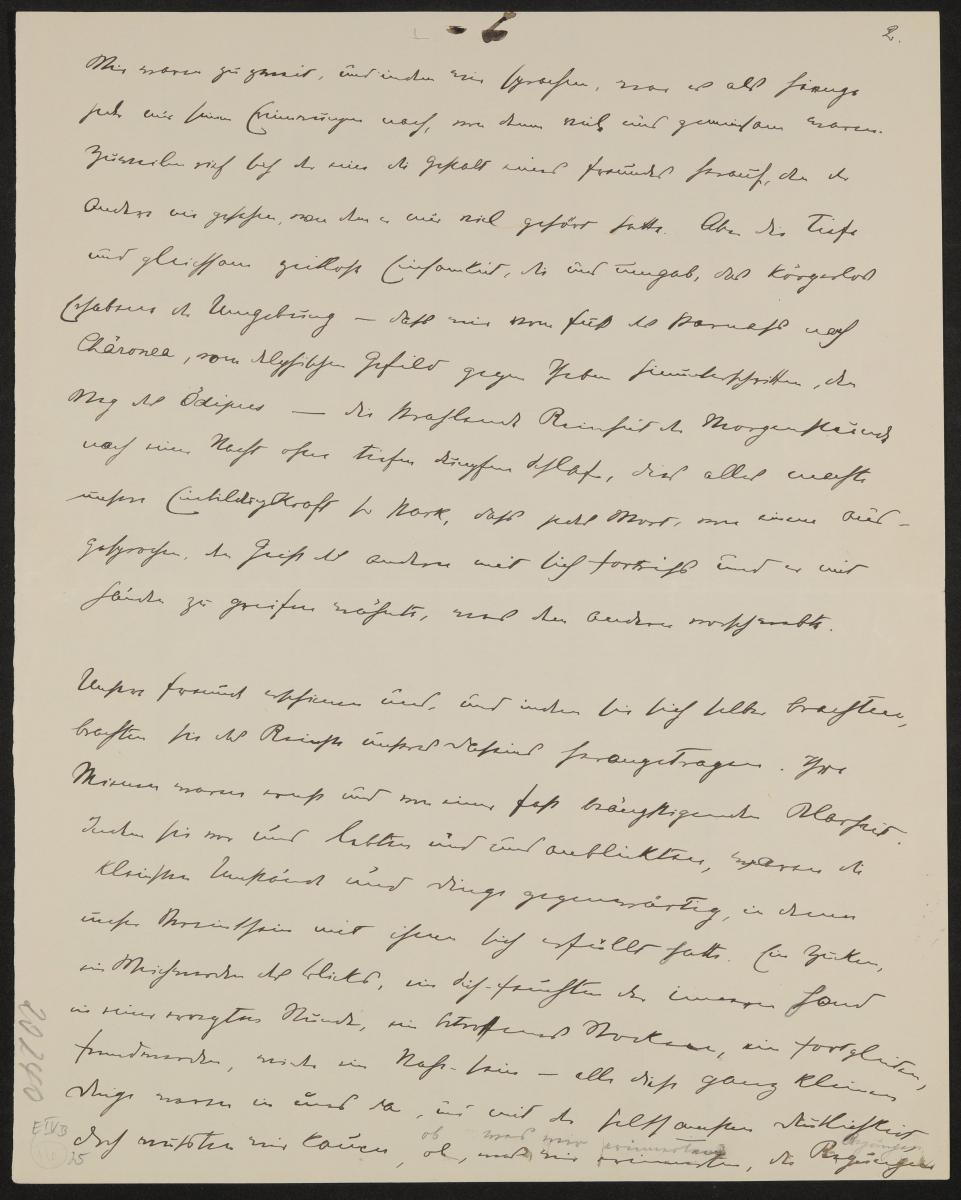 2.
Wir waren zu zweit, und indem wir sprachen, war es als hienge
jeder nur seinen Erinnerungen nach, von denen viele uns gemeinsam waren.
Zuweilen rief sich der eine die Gestalt eines Freundes herauf, den der
andere nie gesehen, von dem er nur viel gehört hatte. Aber die tiefe
und gleichsam zeitlose Einsamkeit, die uns umgab, das körperlos
Erhabene der Umgebung — dass wir vom Fuß des Parnass nach
Chäronea, vom delphischen Gefild gegen Theben hinunterschritten, den
Weg des Ödipus — die strahlende Reinheit der Morgenstunde
nach einer Nacht ohne tiefen dumpfen Schlaf, dies alles machte
unsere Einbildungskraft so stark, dass jedes Wort, von einem aus-
gesprochen, den Geist des andern mit sich fortriss und er mit
Händen zu greifen wähnte, was dem anderen vorschwebte.
Unsere Freunde erschienen uns, und indem sie sich selber brachten,
brachten sie das Reinste unseres Daseins herangetragen. Ihre
Mienen waren ernst und von einer fast beängstigenden Klarheit.
Indem sie vor uns lebten und uns anblickten, waren die
kleinsten Umstände und Dinge gegenwärtig, in denen
unser Vereintsein mit ihnen sich erfüllt hatte. Ein Zucken,
ein Weichwerden des Blicks, ein Sich-feuchten der inneren Hand
in einer erregten Stunde, ein betroffenes Stocken, ein Fortgleiten,
Fremdwerden, wieder ein Nahe-sein — alle diese ganz kleinen
Dinge waren in uns da, und mit der seltsamsten Deutlichkeit
ob was wir erinnerten Regungen
doch wussten wir kaum, ob, was wir erinnerten, die Regungen
20240
E IV B
25